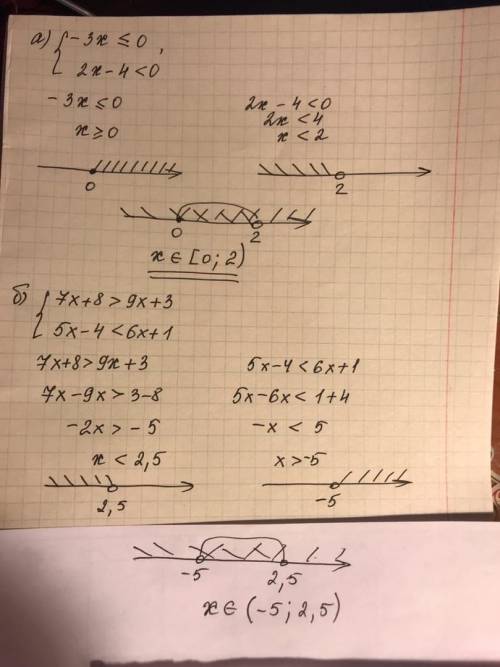 а) { -3x ≤ 0,
2x-4<0
-3x ≤ 0
x ≥ 0
2x - 4 < 0
2x < 4
x < 2
0
2
0 2
x ∈ [0; 2)
б) { 7x+8 > 9x+3
5x-4 < 6x+1
7x+8 > 9x+3
7x-9x > 3-8
-2x > -5
x < 2,5
5x-4 < 6x+1
5x-6x < 1+4
-x < 5
x > -5
2,5
-5
-5 2,5
x ∈ (-5; 2,5)